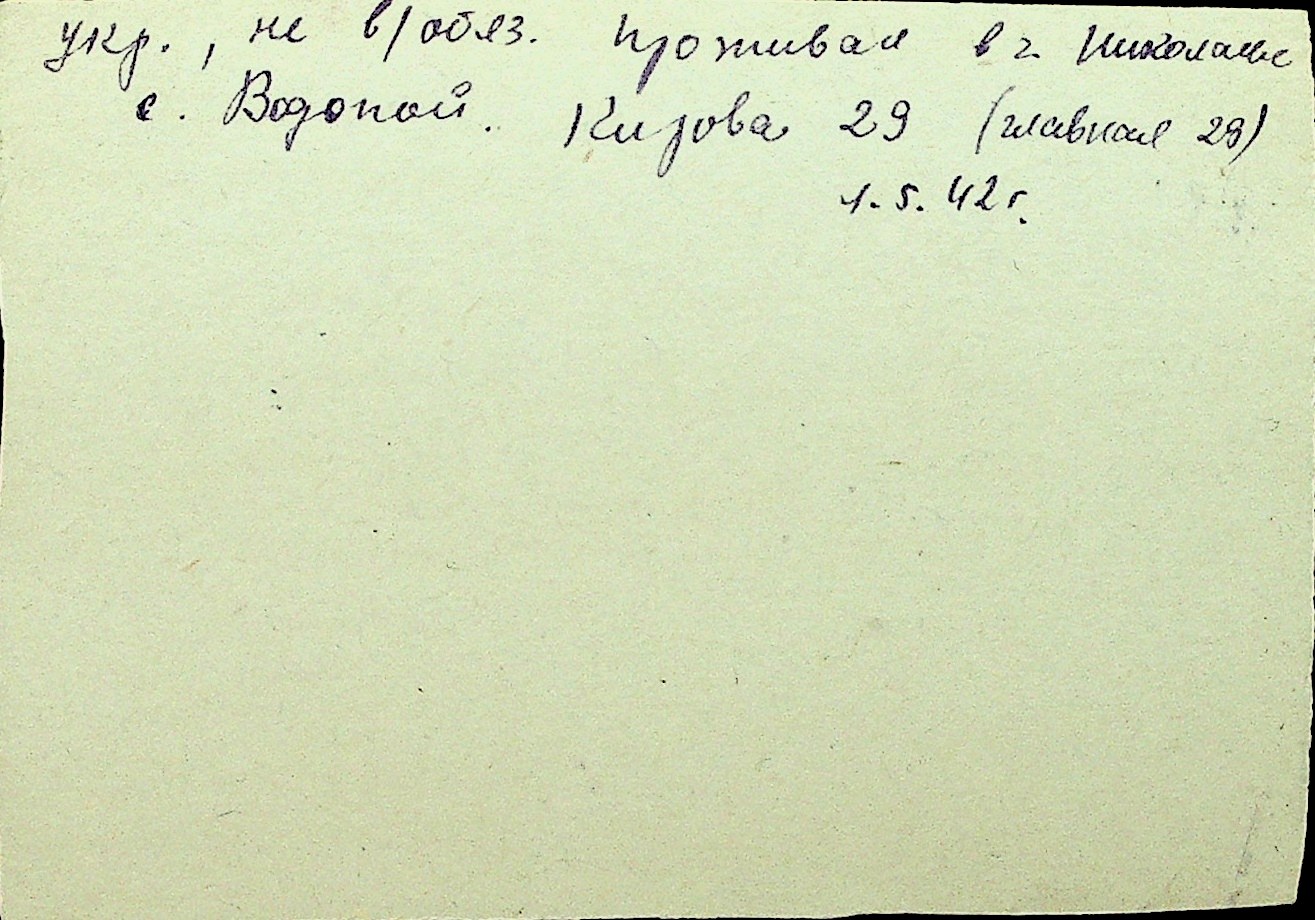 укр., не в/обяз. Проживал в г. Николаеве
с. Водопой. Кирова 29 (главная 29)
1.5.42г.